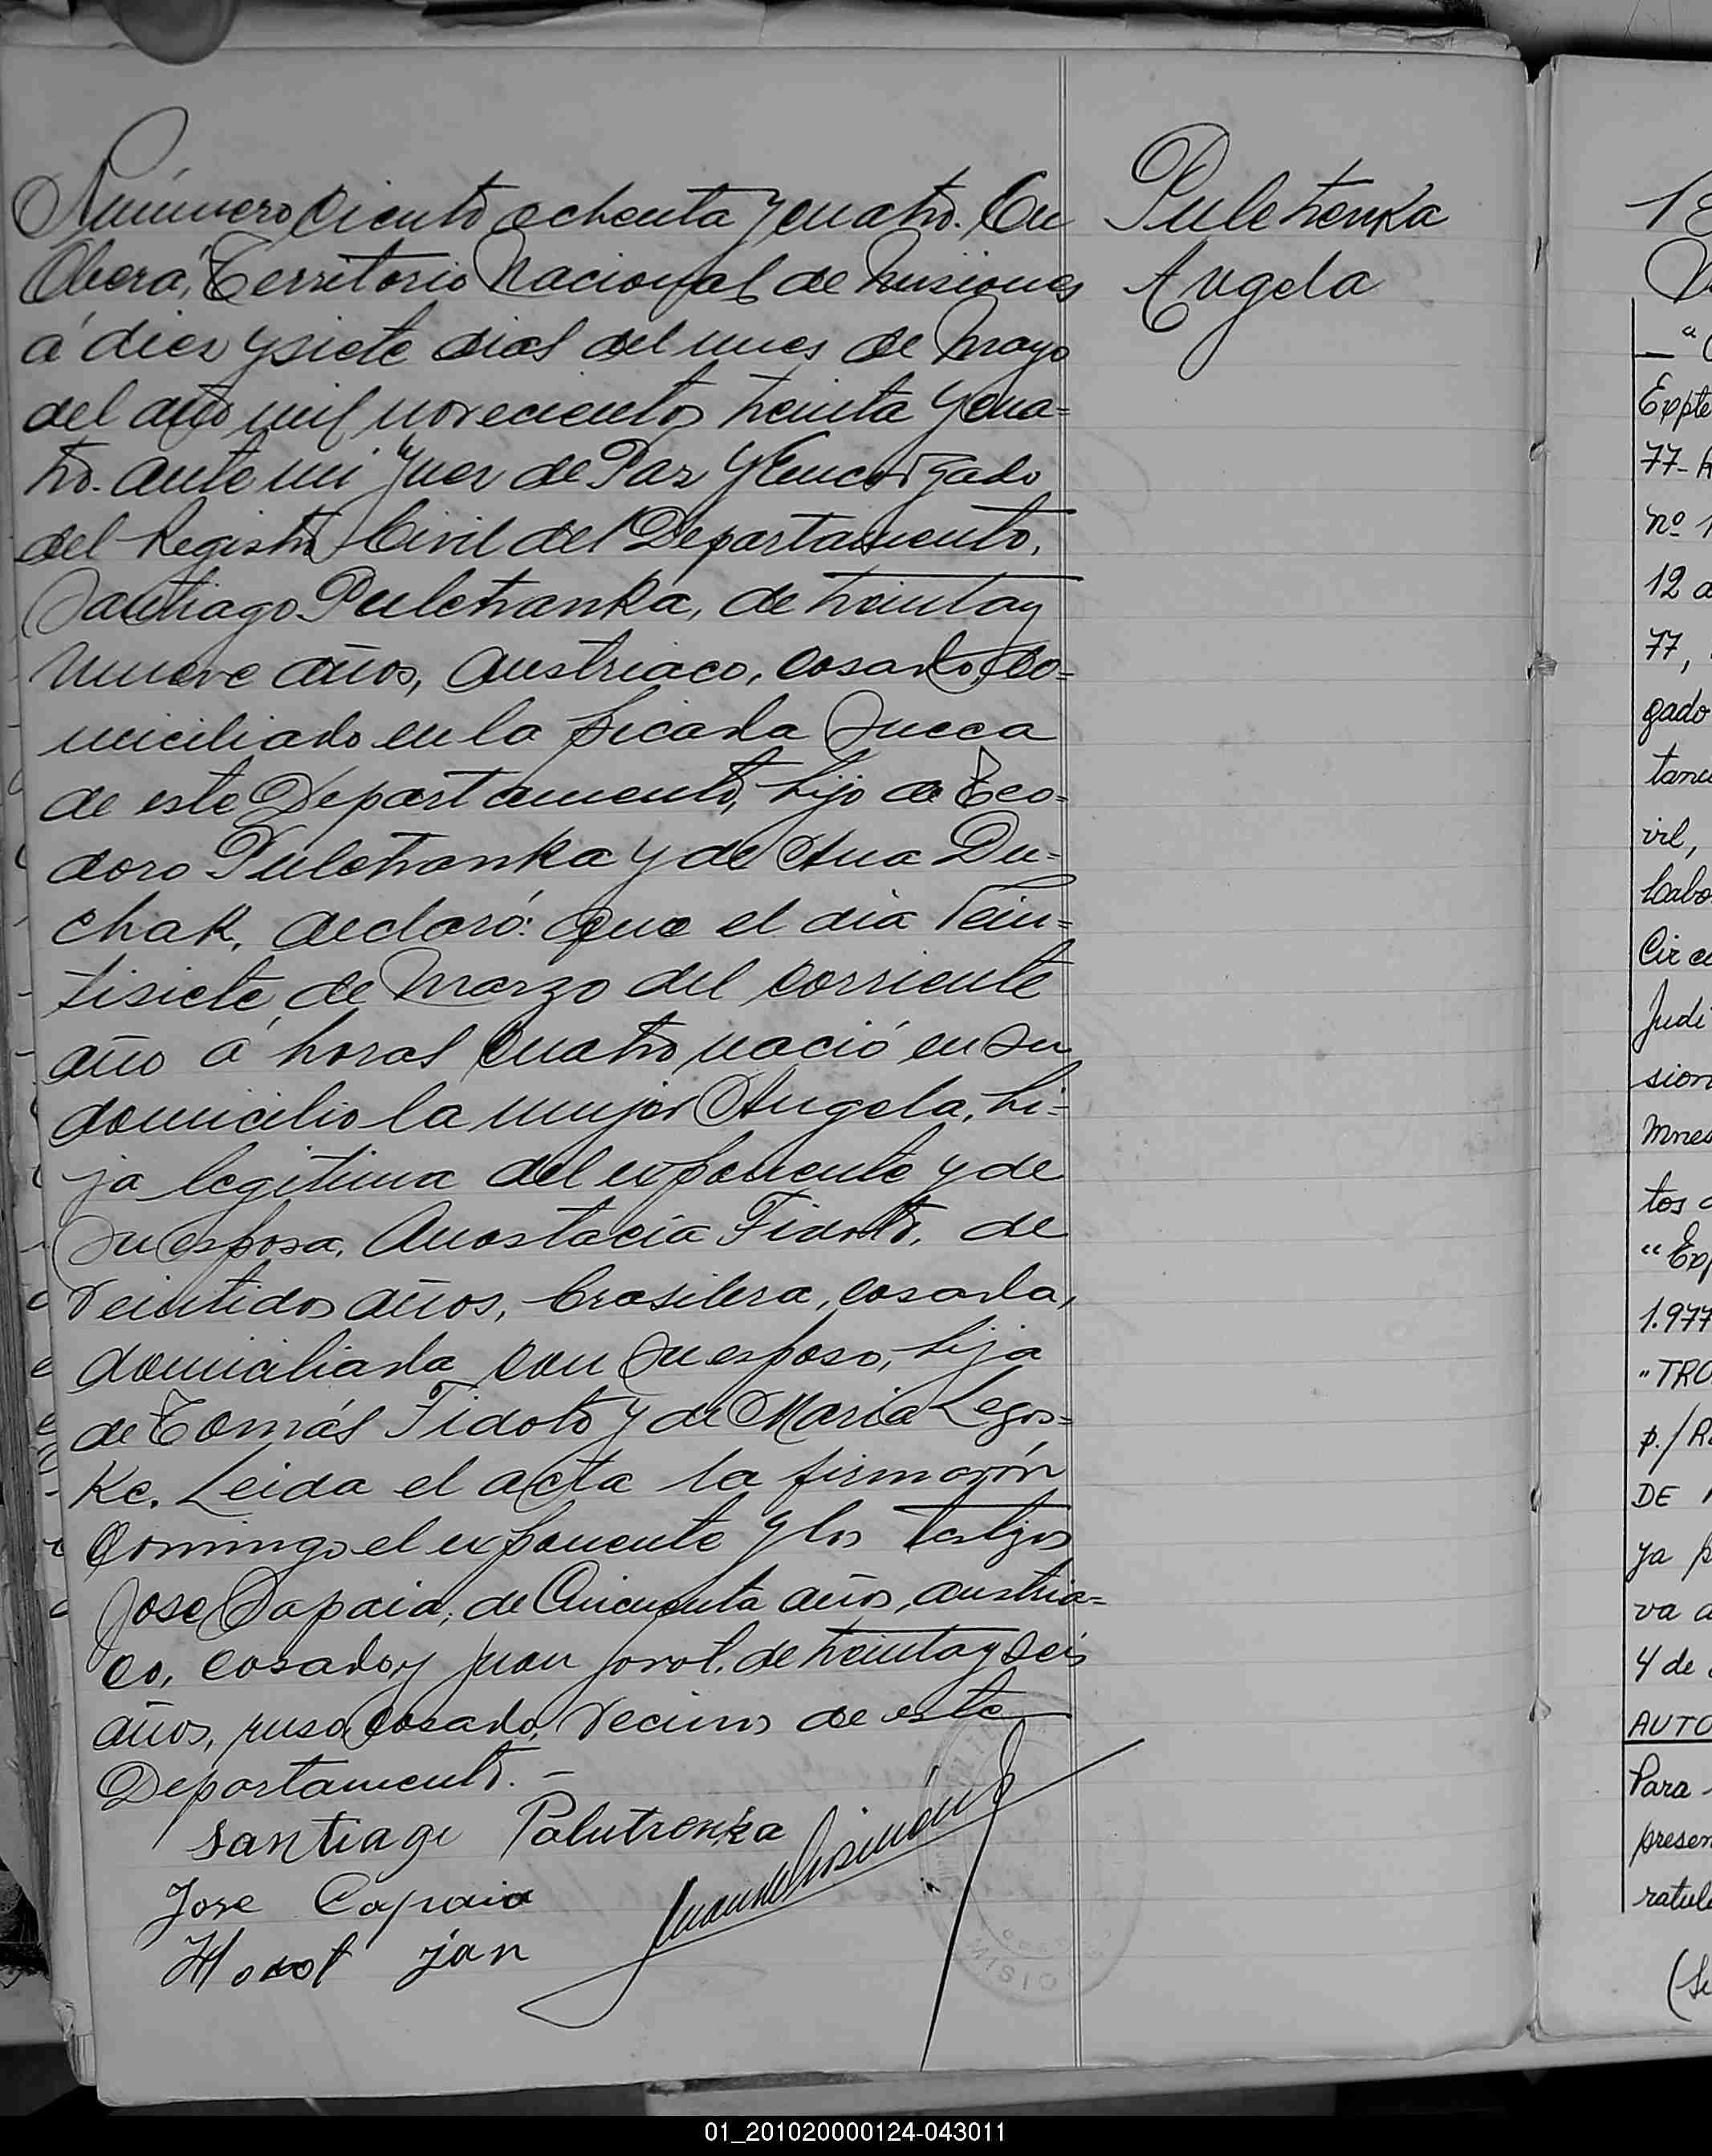 Número ciento ochenta y cuatro. En
Oberá, Territorio Nacional de Misiones
á diez y siete dias del mes de Mayo
del año mil novecientos treinta y cua=
tro. ante mi Juez de Paz y Encargado
del Registro Civil del Departamento,
Santiago Puletranka, de treinta y
nueve años, austriaco, casado, do=
miciliado en la picada Sueca
de este Departamento, hijo de Teo=
doro Puletranka y de Ana Du=
chak, declaró: Que el dia vein=
tisiete de Marzo del corriente
año á horas cuatro nació en su
domicilio la mujer Angela, hi=
ja legitima del exponente y de
su esposa, Anastacia Fidoto, de
veintidos años, brasilera, casada,
domiciliada con su esposo, hija
de Tomás Fidoto y de Maria Legos=
ke. Leida el acta la firmarón
conmingo el exponente y los testigos
Jose Sapaia, de Cincuenta años, austria=
co, casado y Juan de treinta y seis
años, ruso, casado, vecinos de este
Departamento. -
Santiago Polutrenka
Jose Capaia
jan
Puletrenka
Angela
Expte
77-
nº 1
12
77,
gado
vil,
Judi
sion
tos
1.977
"TRO
DE
ya
va a
4 de
AUTO
Para
presen
01_201020000124-043011